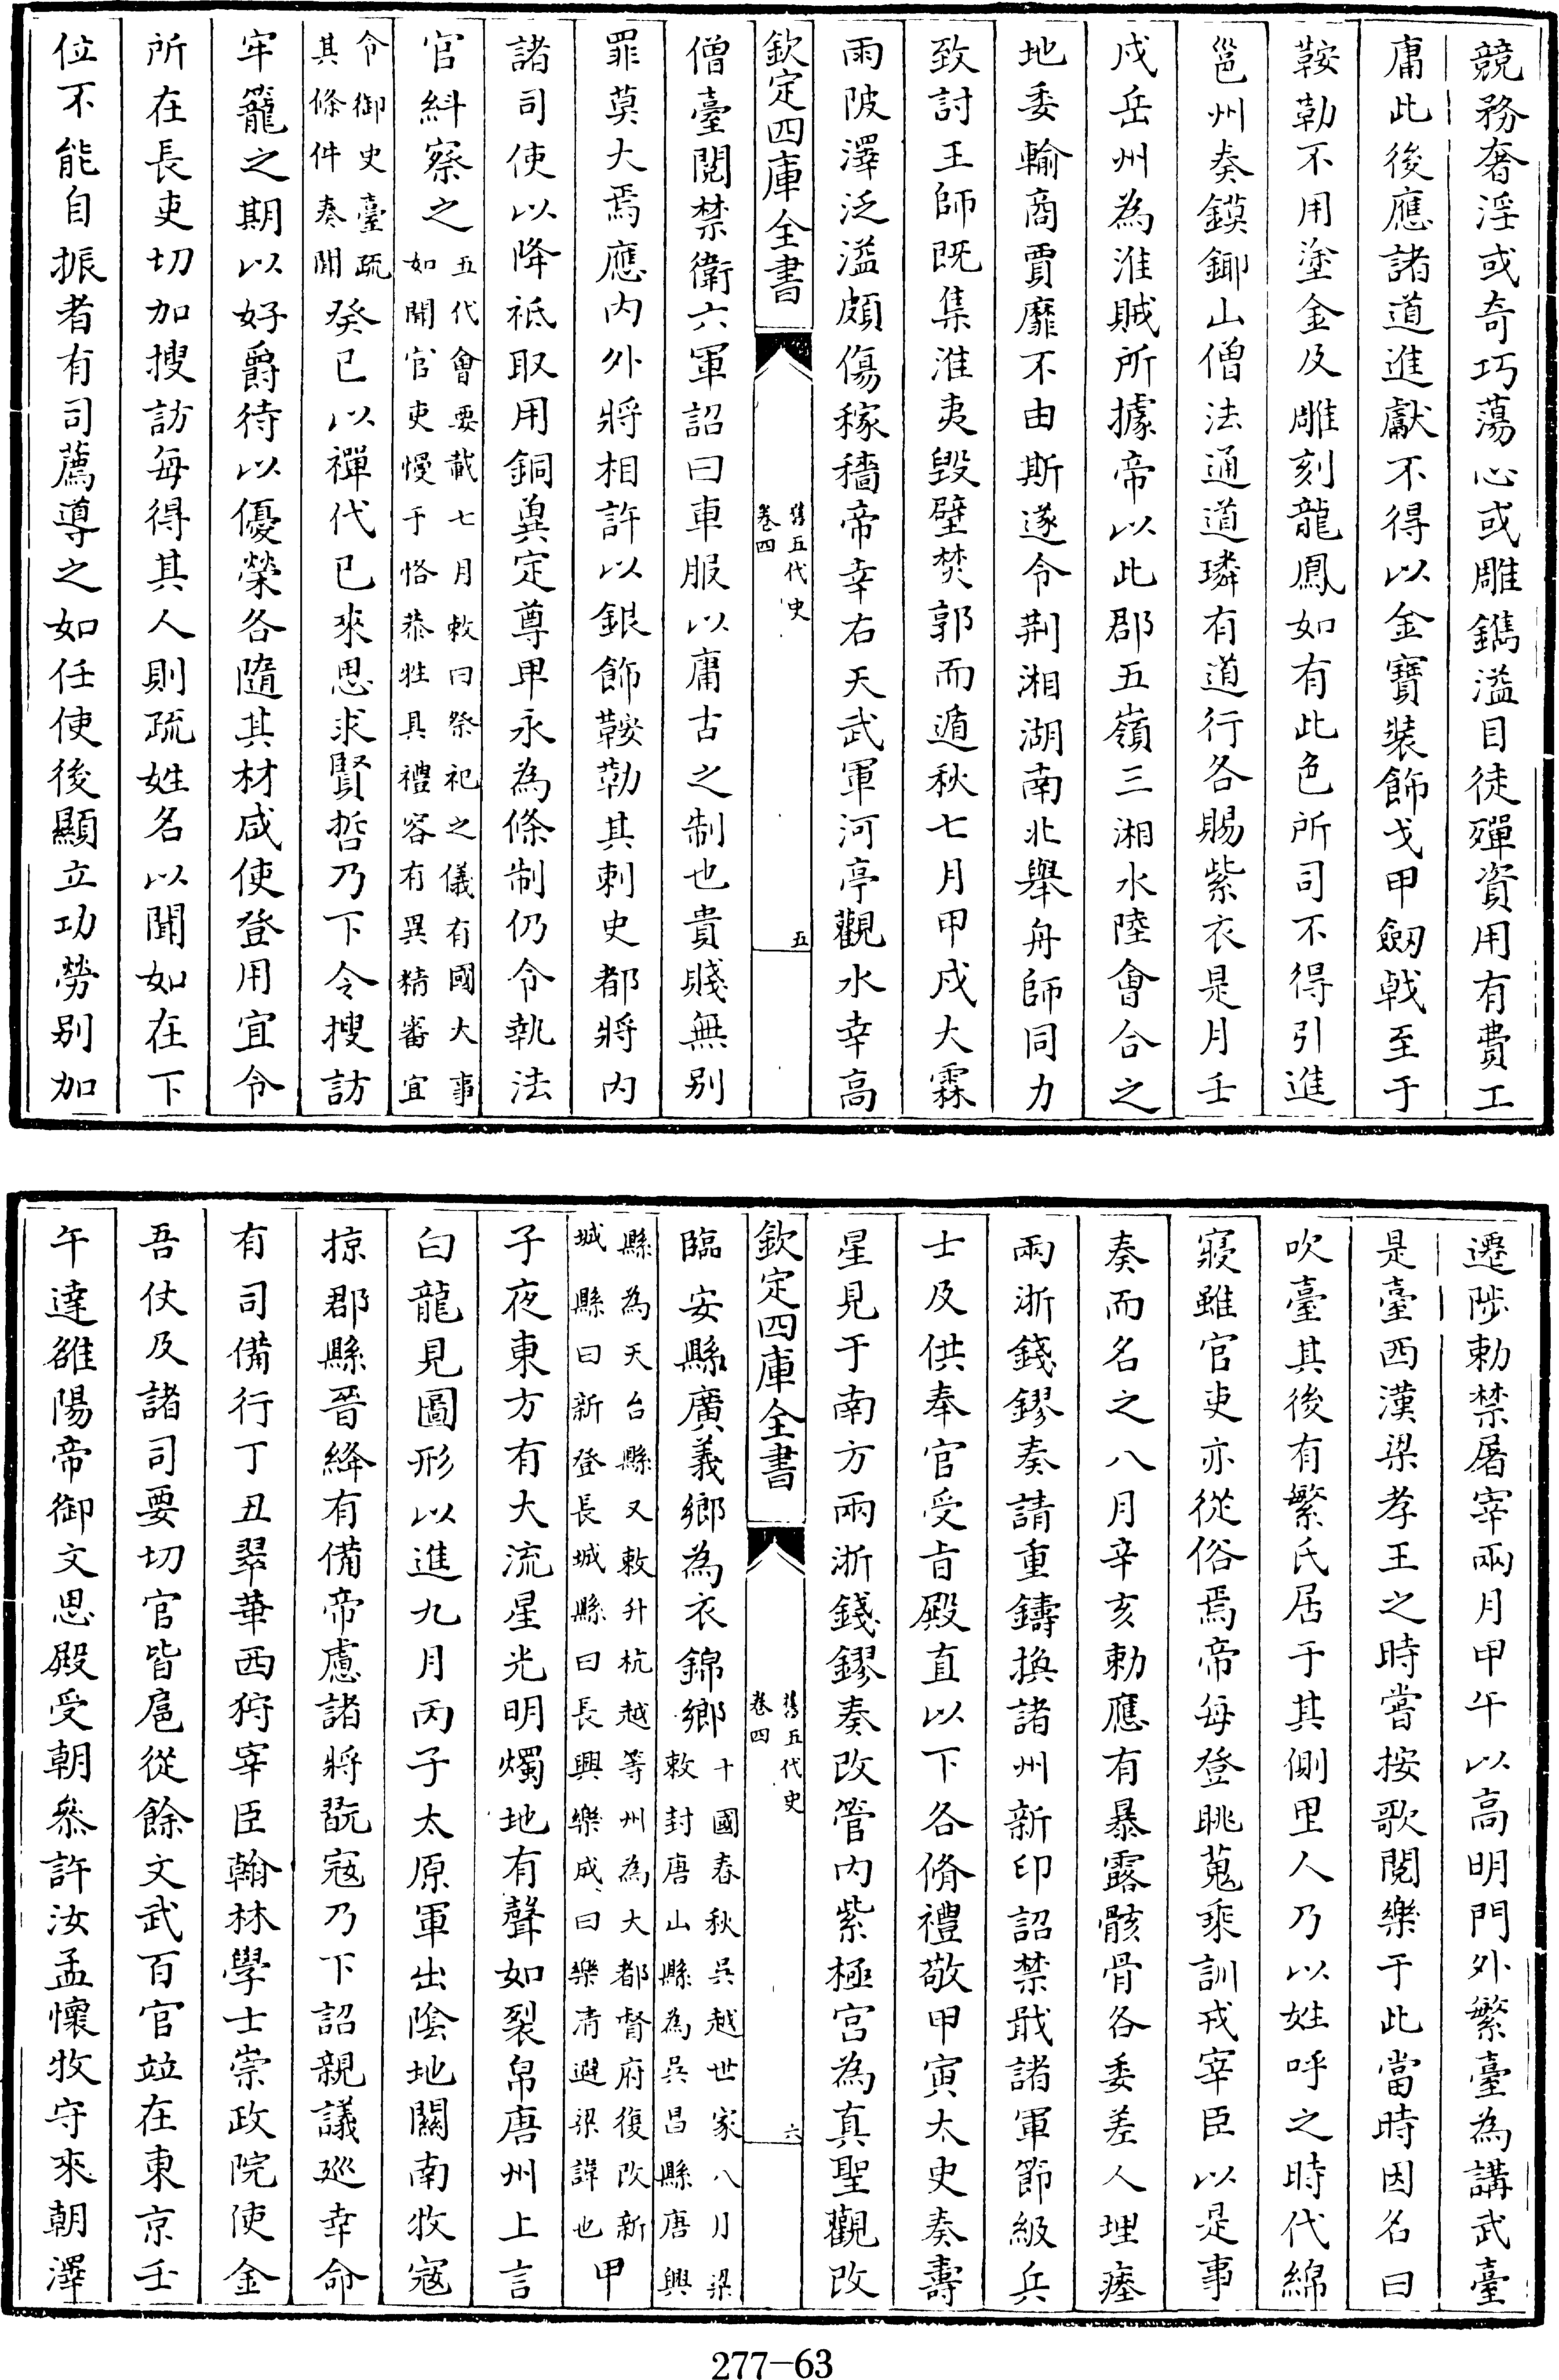 競務奢淫或奇巧蕩心或雕鐫溢目徒殫資用有費工
庸此後應諸道進獻不得以金寶裝飾戈甲劒戟至于
鞍勒不用塗金及雕刻龍鳳如有此色所司不得引進
邕州奏鏌鋣山僧法通道璘有道行各賜紫衣是月壬
戌岳州為淮賊所據帝以此郡五嶺三湘水陸會合之
地委輸商賈靡不由斯遂令荆湘湖南北舉舟師同力
致討王師既集淮夷毁壁焚郭而遁秋七月甲戌大霖
雨陂澤泛溢頗傷稼穡帝幸右天武軍河亭觀水幸高
欽定四庫全書
舊五代史
卷四
五
僧臺閲禁衛六軍詔曰車服以庸古之制也貴賤無别
罪莫大焉應内外將相許以銀飾鞍勒其刺史都將内
諸司使以降祗取用銅兾定尊卑永為條制仍令執法
官糾察之
五代會要載七月敕曰祭祀之儀有國大事
如聞官吏慢于恪恭牲具禮容有異精審宜
令御史臺疏
其條件奏聞
癸已以禪代已來思求賢哲乃下令搜訪
牢籠之期以好爵待以優榮各隨其材咸使登用宜令
所在長吏切加搜訪每得其人則疏姓名以聞如在下
位不能自振者有司薦導之如任使後顯立功勞别加
遷陟勅禁屠宰兩月甲午以高明門外繁臺為講武臺
是臺西漢梁孝王之時嘗按歌閲樂于此當時因名曰
吹臺其後有繁氏居于其側里人乃以姓呼之時代綿
寢雖官吏亦從俗焉帝每登眺蒐乘訓戎宰臣以是事
奏而名之八月辛亥勅應有暴露骸骨各委差人埋瘞
兩浙錢鏐奏請重鑄換諸州新印詔禁戢諸軍節級兵
士及供奉官受㫖殿直以下各脩禮敬甲寅太史奏壽
星見于南方兩浙錢鏐奏改管内紫極宫為真聖觀改
欽定四庫全書
舊五代史
卷四
六
臨安縣廣義鄉為衣錦鄉
十國春秋吳越世家八月梁
敕封唐山縣為吳昌縣唐興
縣為天台縣又敕升杭越等州為大都督府復改新
城縣曰新登長城縣曰長興樂成曰樂清避梁諱也
甲
子夜東方有大流星光明燭地有聲如裂帛唐州上言
白龍見圖形以進九月丙子太原軍出陰地關南牧寇
掠郡縣晉絳有備帝慮諸將翫寇乃下詔親議廵幸命
有司備行丁丑翠華西狩宰臣翰林學士崇政院使金
吾仗及諸司要切官皆扈從餘文武百官竝在東京壬
午達雒陽帝御文思殿受朝㕘許汝孟懷牧守來朝澤
277-63